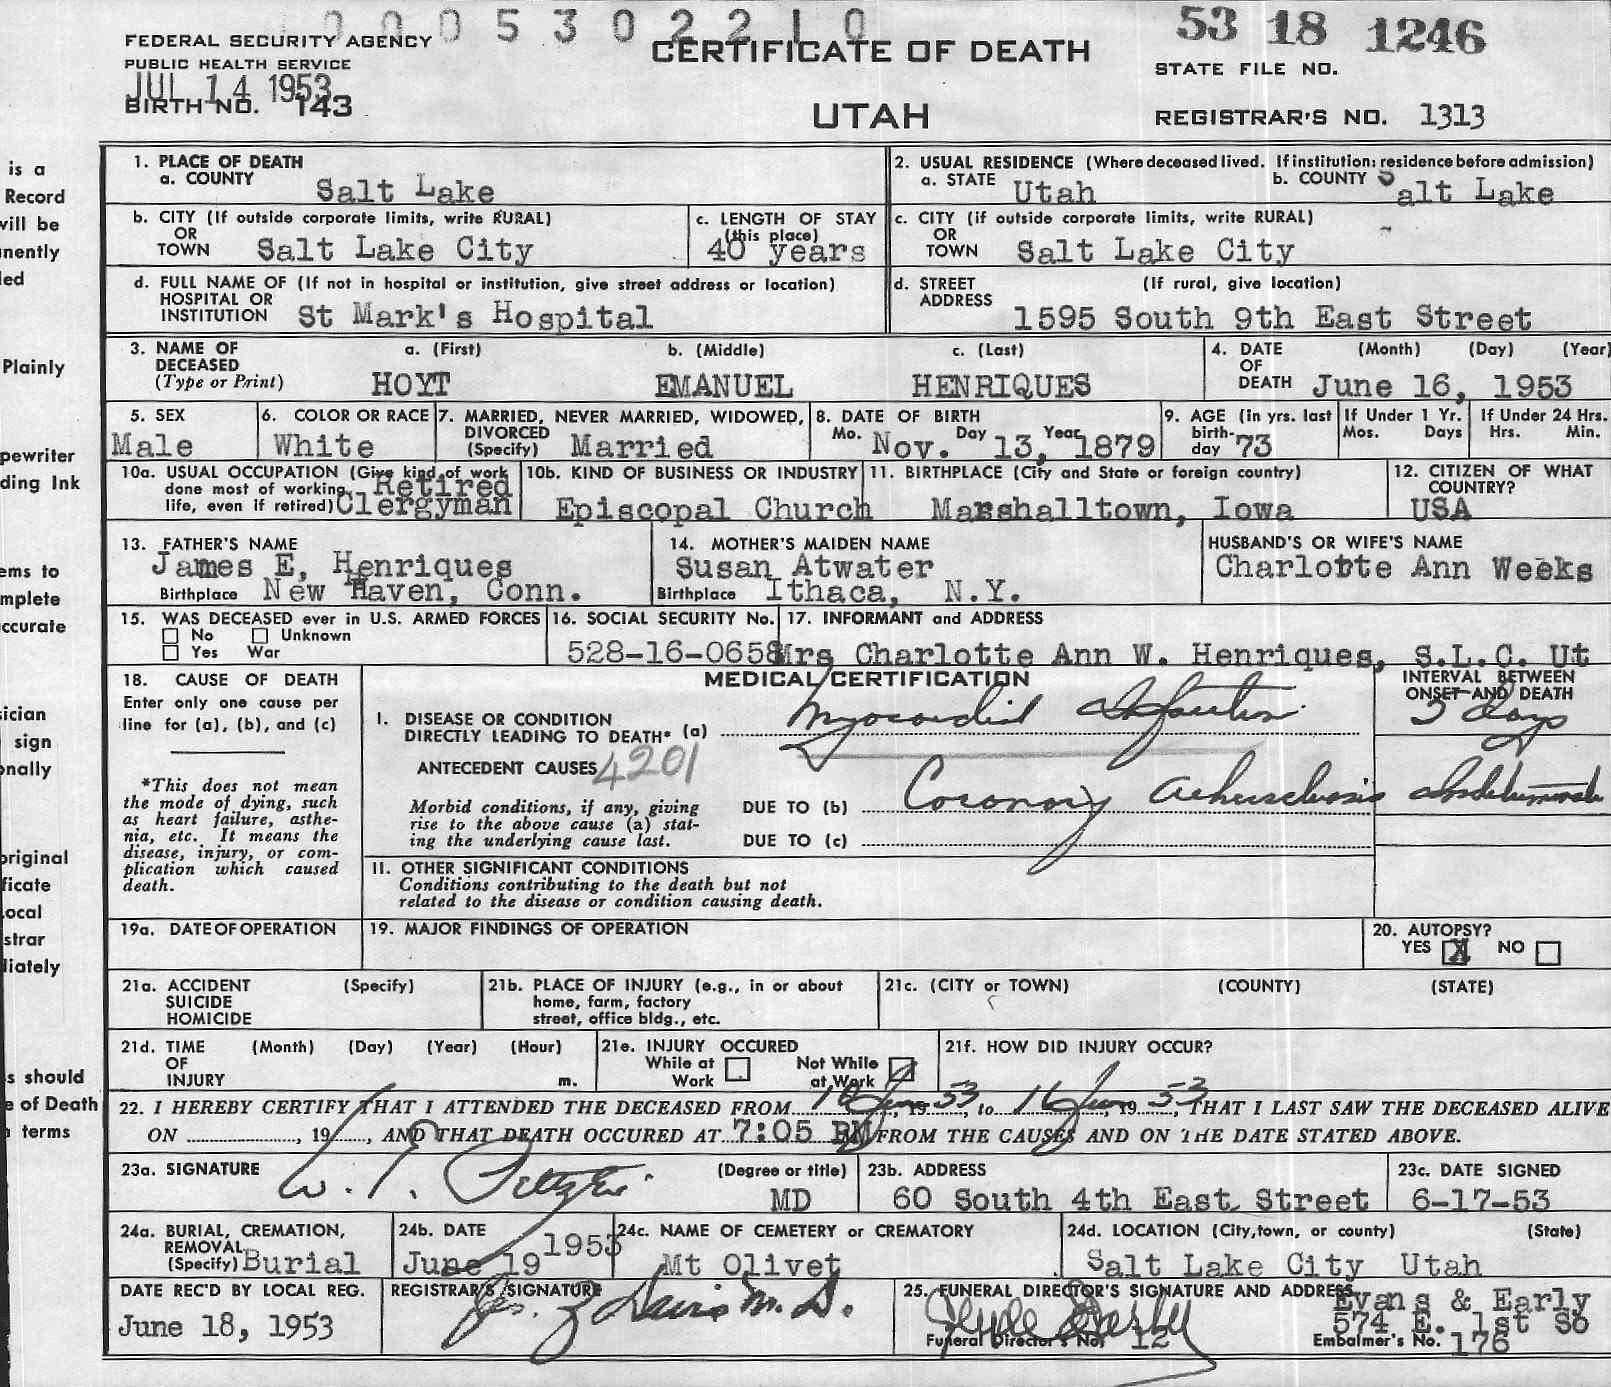 0005302210
53 18 1246
FEDERAL SECURITY AGENCY
PUBLIC HEALTH SERVICE
JUL 14 1953
BIRTH NO. 143
CERTIFICATE OF DEATH
UTAH
STATE FILE NO.
REGISTRAR'S NO. 1313
1. PLACE OF DEATH
a. COUNTY Salt Lake
2. USUAL RESIDENCE (Where deceased lived. If institution: residence before admission)
a. STATE Utah b. COUNTY Salt Lake
b. CITY (If outside corporate limits, write RURAL)
OR
TOWN Salt Lake City
c. LENGTH OF STAY
(this place)
40 years
c. CITY (if outside corporate limits, write RURAL)
OR
TOWN Salt Lake City
d. FULL NAME OF (If not in hospital or institution, give street address or location)
HOSPITAL OR
INSTITUTION St Mark's Hospital
d. STREET (If rural, give location)
ADDRESS
1595 South 9th East Street
3. NAME OF DECEASED (Type or Print)
a. (First) b. (Middle) c. (Last)
HOYT EMANUEL HENRIQUES
4. DATE OF DEATH (Month) (Day) (Year)
June 16, 1953
5. SEX
Male
6. COLOR OR RACE
White
7. MARRIED, NEVER MARRIED, WIDOWED,
DIVORCED
(Specify) Married
8. DATE OF BIRTH
Mo. Nov. Day 13, Year 1879
9. AGE (in yrs. last
birth-
day 73
If Under 1 Yr.
Mos. Days
If Under 24 Hrs.
Hrs. Min.
10a. USUAL OCCUPATION (Give kind of work
done most of working Retired
life, even if retired) Clergyman
10b. KIND OF BUSINESS OR INDUSTRY
Episcopal Church
11. BIRTHPLACE (City and State or foreign country)
Marshalltown, Iowa
12. CITIZEN OF WHAT
COUNTRY?
USA
13. FATHER'S NAME
James E, Henriques
Birthplace New Haven, Conn.
14. MOTHER'S MAIDEN NAME
Susan Atwater
Birthplace Ithaca, N.Y.
HUSBAND'S OR WIFE'S NAME
Charlotte Ann Weeks
15. WAS DECEASED ever in U.S. ARMED FORCES
No Unknown
Yes War
16. SOCIAL SECURITY No.
528-16-0658
17. INFORMANT and ADDRESS
Mrs Charlotte Ann W. Henriques, S.L.C. Ut
18. CAUSE OF DEATH
Enter only one cause per
line for (a), (b), and (c)
*This does not mean
the mode of dying, such
as heart failure, asthe-
nia, etc. It means the
disease, injury, or com-
plication which caused
death.
MEDICAL CERTIFICATION
INTERVAL BETWEEN
ONSET AND DEATH
I. DISEASE OR CONDITION
DIRECTLY LEADING TO DEATH* (a) Myocardial Infarction
days
ANTECEDENT CAUSES 4201
Morbid conditions, if any, giving
rise to the above cause (a) stat-
ing the underlying cause last.
DUE TO (b) Coronary
DUE TO (c)
II. OTHER SIGNIFICANT CONDITIONS
Conditions contributing to the death but not
related to the disease or condition causing death.
19a. DATE OF OPERATION
19. MAJOR FINDINGS OF OPERATION
20. AUTOPSY?
YES X NO
21a. ACCIDENT (Specify)
SUICIDE
HOMICIDE
21b. PLACE OF INJURY (e.g., in or about
home, farm, factory
street, office bldg., etc.
21c. (CITY or TOWN) (COUNTY) (STATE)
21d. TIME (Month) (Day) (Year) (Hour)
OF
INJURY m.
21e. INJURY OCCURED
While at Work
Not While at Work
21f. HOW DID INJURY OCCUR?
22. I HEREBY CERTIFY THAT I ATTENDED THE DECEASED FROM 16 Jun, 1953, to 16 Jun, 1953, THAT I LAST SAW THE DECEASED ALIVE
ON , 19 , AND THAT DEATH OCCURED AT 7:05 PM FROM THE CAUSES AND ON THE DATE STATED ABOVE.
23a. SIGNATURE (Degree or title)
MD
23b. ADDRESS
60 South 4th East Street
23c. DATE SIGNED
6-17-53
24a. BURIAL, CREMATION,
REMOVAL
(Specify) Burial
24b. DATE
June 19 1953
24c. NAME OF CEMETERY or CREMATORY
Mt Olivet
24d. LOCATION (City, town, or county) (State)
Salt Lake City Utah
DATE REC'D BY LOCAL REG.
June 18, 1953
REGISTRAR'S SIGNATURE
Davis M. D.
25. FUNERAL DIRECTOR'S SIGNATURE AND ADDRESS
Clyde
Evans & Early
574 E. 1st So
Funeral Director's No. 12
Embalmer's No. 176
is a
Record
will be
nently
ed
Plainly
pewriter
ding Ink
ems to
mplete
ccurate
sician
sign
onally
original
ficate
ocal
strar
diately
s should
e of Death
terms